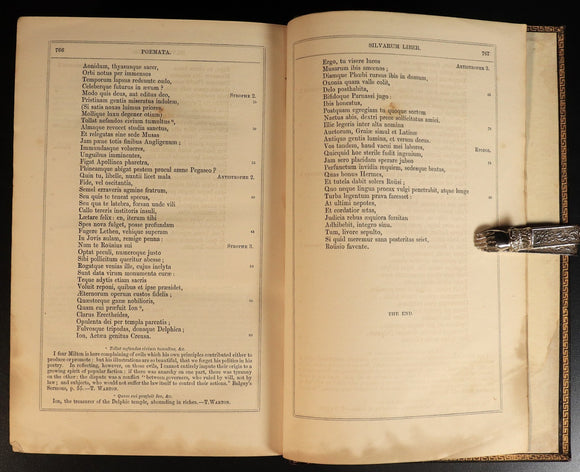 766
POEMATA.
Aonidum, thyasusque sacer,
Orbi notus per immensos
Temporum lapsus redeunte cœlo,
Celeberque futurus in ævum?
Modo quis deus, aut editus deo,
STROPHE 2.
Pristinam gentis miseratus indolem,
(Si satis noxas luimus priores,
Mollique luxu degener otium)
Tollat nefandos civium tumultus ᵘ,
Almaque revocet studia sanctus,
Et relegatas sine sede Musas
Jam pæne totis finibus Angligenum;
Immundasque volucres,
Unguibus imminentes,
Figat Apollinea pharetra,
Phineamque abigat pestem procul amne Pegaseo?
Quin tu, libelle, nuntii licet mala
ANTISTROPHE 2.
Fide, vel oscitantia,
Semel erraveris agmine fratrum,
Seu quis te teneat specus,
Seu qua te latebra, forsan unde vili
Callo tereris institoris insulsi,
Lætare felix: en, iterum tibi
Spes nova fulget, posse profundam
Fugere Lethen, vehique superam
In Jovis aulam, remige penna:
Nam te Roüsius sui
STROPHE 3.
Optat peculi, numeroque justo
Sibi pollicitum queritur abesse;
Rogatque venias ille, cujus inclyta
Sunt data virum monumenta curæ:
Teque adytis etiam sacris
Voluit reponi, quibus et ipse præsidet,
Æternorum operum custos fidelis;
Quæstorque gazæ nobilioris,
Quam cui præfuit Ion ˣ,
Clarus Erechtheides,
Opulenta dei per templa parentis;
Fulvosque tripodas, donaque Delphica;
Ion, Actæa genitus Creusa.
ᵘ Tollat nefandos civium tumultus, &c.
I fear Milton is here complaining of evils which his own principles contributed either to
produce or promote; but his illustrations are so beautiful, that we forget his politics in his
poetry. In reflecting, however, on those evils, I cannot entirely impute their origin to a
growing spirit of popular faction: if there was anarchy on one part, there was tyranny
on the other: the dispute was a conflict "between governors, who ruled by will, not by
law; and subjects, who would not suffer the law itself to control their actions." Balguy's
Sermons, p. 55.—T. WARTON.
ˣ Quam cui præfuit Ion, &c.
Ion, the treasurer of the Delphic temple, abounding in riches.—T. WARTON.
SILVARUM LIBER.
767
Ergo, tu visere lucos
ANTISTROPHE 3.
Musarum ibis amœnos;
Diamque Phœbi rursus ibis in domum,
Oxonia quam valle colit,
Delo posthabita,
Bifidoque Parnassi jugo:
Ibis honestus,
Postquam egregiam tu quoque sortem
Nactus abis, dextri prece sollicitatus amici.
Illic legeris inter alta nomina
Auctorum, Graiæ simul et Latinæ
Antiqua gentis lumina, et verum decus.
Vos tandem, haud vacui mei labores,
EPODOS.
Quicquid hoc sterile fudit ingenium,
Jam sero placidam sperare jubeo
Perfunctam invidia requiem, sedesque beatas,
Quas bonus Hermes,
Et tutela dabit solers Roüsi;
Quo neque lingua procax vulgi penetrabit, atque longe
Turba legentum prava facesset:
At ultimi nepotes,
Et cordatior ætas,
Judicia rebus æquiora forsitan
Adhibebit, integro sinu.
Tum, livore sepulto,
Si quid meremur sana posteritas sciet,
Roüsio favente.
THE END.